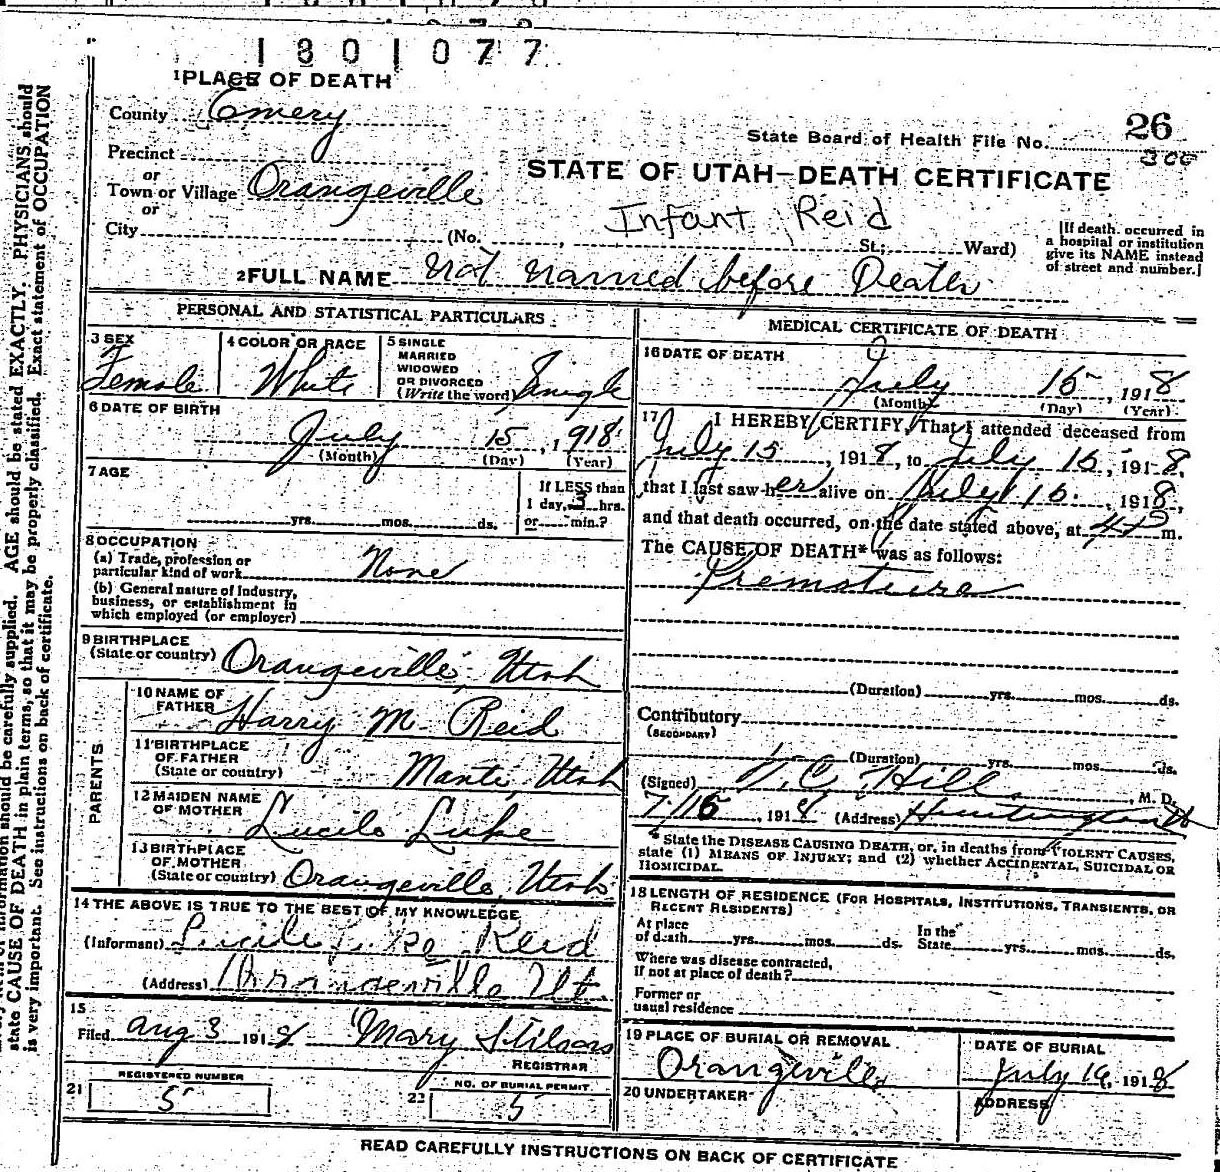 1801077
1 PLACE OF DEATH
County Emery
State Board of Health File No. 26
300
Precinct
or
Town or Village Orangeville
or
City (No. , St.; Ward)
STATE OF UTAH—DEATH CERTIFICATE
Infant Reid
[If death occurred in
a hospital or institution
give its NAME instead
of street and number.]
2 FULL NAME Not named before Death
PERSONAL AND STATISTICAL PARTICULARS
3 SEX
Female
4 COLOR OR RACE
White
5 SINGLE
MARRIED
WIDOWED
OR DIVORCED
(Write the word) Single
6 DATE OF BIRTH
July 15, 1918
(Month) (Day) (Year)
7 AGE
yrs. mos. ds.
If LESS than
1 day, 3 hrs.
or min.?
8 OCCUPATION
(a) Trade, profession or
particular kind of work None
(b) General nature of Industry,
business, or establishment in
which employed (or employer)
9 BIRTHPLACE
(State or country) Orangeville, Utah
PARENTS
10 NAME OF
FATHER Harry M. Reid
11 BIRTHPLACE
OF FATHER
(State or country) Manti, Utah
12 MAIDEN NAME
OF MOTHER Lucile Luke
13 BIRTHPLACE
OF MOTHER
(State or country) Orangeville, Utah
14 THE ABOVE IS TRUE TO THE BEST OF MY KNOWLEDGE
(Informant) Lucile Luke Reid
(Address) Orangeville Ut.
15
Filed Aug 3 1918 Mary Stilson
REGISTRAR
21 REGISTERED NUMBER
5
22 NO. OF BURIAL PERMIT
5
MEDICAL CERTIFICATE OF DEATH
16 DATE OF DEATH
July 15, 1918
(Month) (Day) (Year)
17 I HEREBY CERTIFY, That I attended deceased from
July 15, 1918, to July 15, 1918,
that I last saw her alive on July 15, 1918,
and that death occurred, on the date stated above, at 4 P m.
The CAUSE OF DEATH* was as follows:
Premature
(Duration) yrs. mos. ds.
Contributory
(SECONDARY)
(Duration) yrs. mos. ds.
(Signed) T. C. Hill, M. D.
7/15, 1918 (Address) Huntington
* State the DISEASE CAUSING DEATH, or, in deaths from VIOLENT CAUSES,
state (1) MEANS OF INJURY; and (2) whether ACCIDENTAL, SUICIDAL OR
HOMICIDAL.
18 LENGTH OF RESIDENCE (FOR HOSPITALS, INSTITUTIONS, TRANSIENTS, OR
RECENT RESIDENTS)
At place
of death yrs. mos. ds.
In the
State yrs. mos. ds.
Where was disease contracted,
if not at place of death?
Former or
usual residence
19 PLACE OF BURIAL OR REMOVAL
Orangeville
DATE OF BURIAL
July 16, 1918
20 UNDERTAKER
ADDRESS
READ CAREFULLY INSTRUCTIONS ON BACK OF CERTIFICATE
information should be carefully supplied. AGE should be stated EXACTLY. PHYSICIANS should
state CAUSE OF DEATH in plain terms, so that it may be properly classified. Exact statement of OCCUPATION
is very important. See instructions on back of certificate.